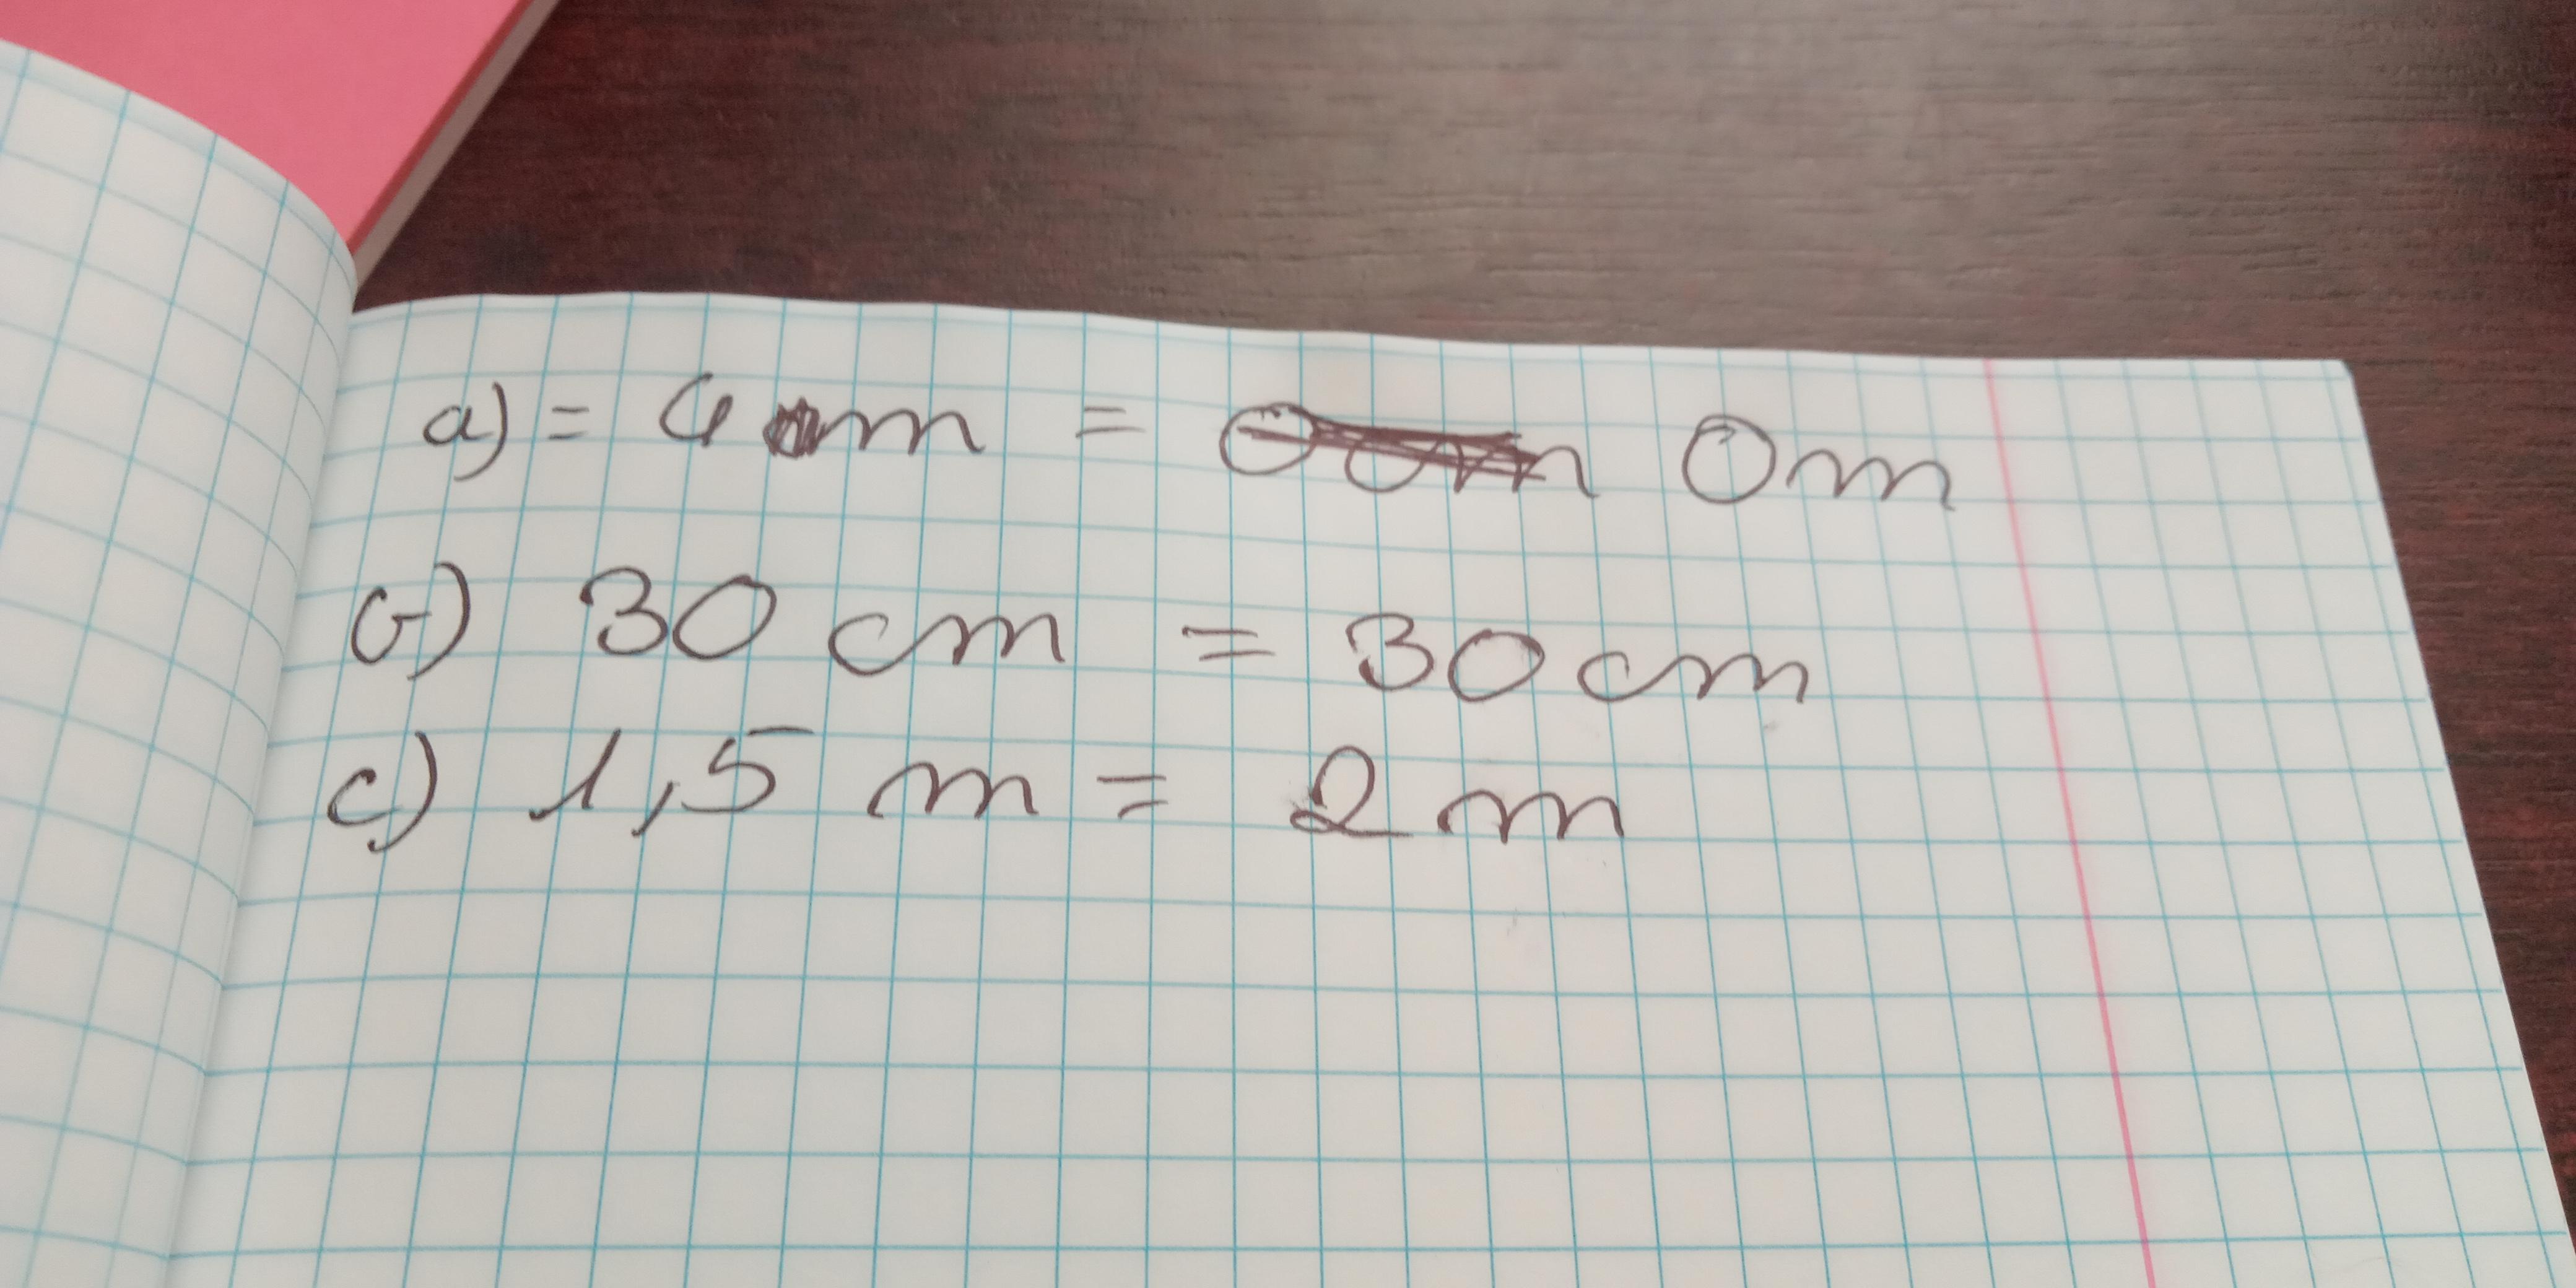 a) = 4 m = 0 m
b) 30 cm = 30 cm
c) 1,5 m = 2 m